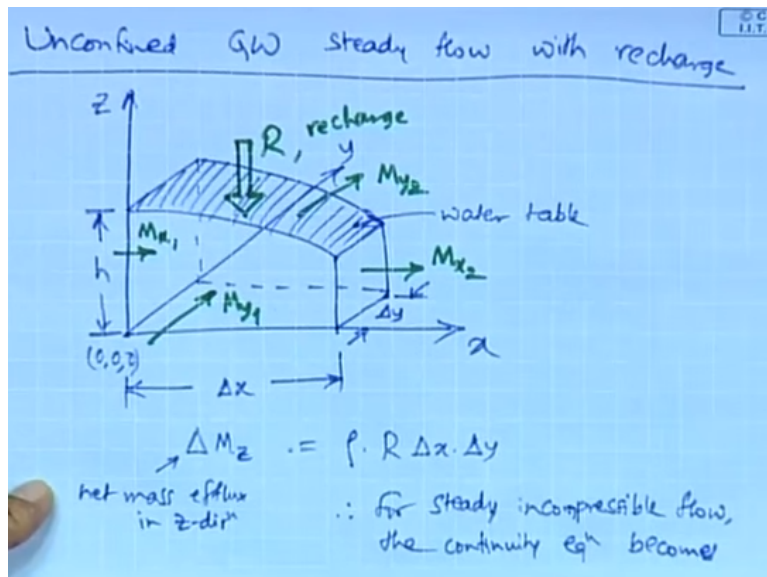 © C
I.I.T.
Unconfined GW steady flow with recharge
Z
R, recharge
y
My2
water table
Mx1
h
Mx2
My1
Δy
(0,0,0)
x
Δx
ΔMz = ρ. R Δx. Δy
net mass efflux
in z-dirn
∴ for steady incompressible flow,
the continuity eqn becomes